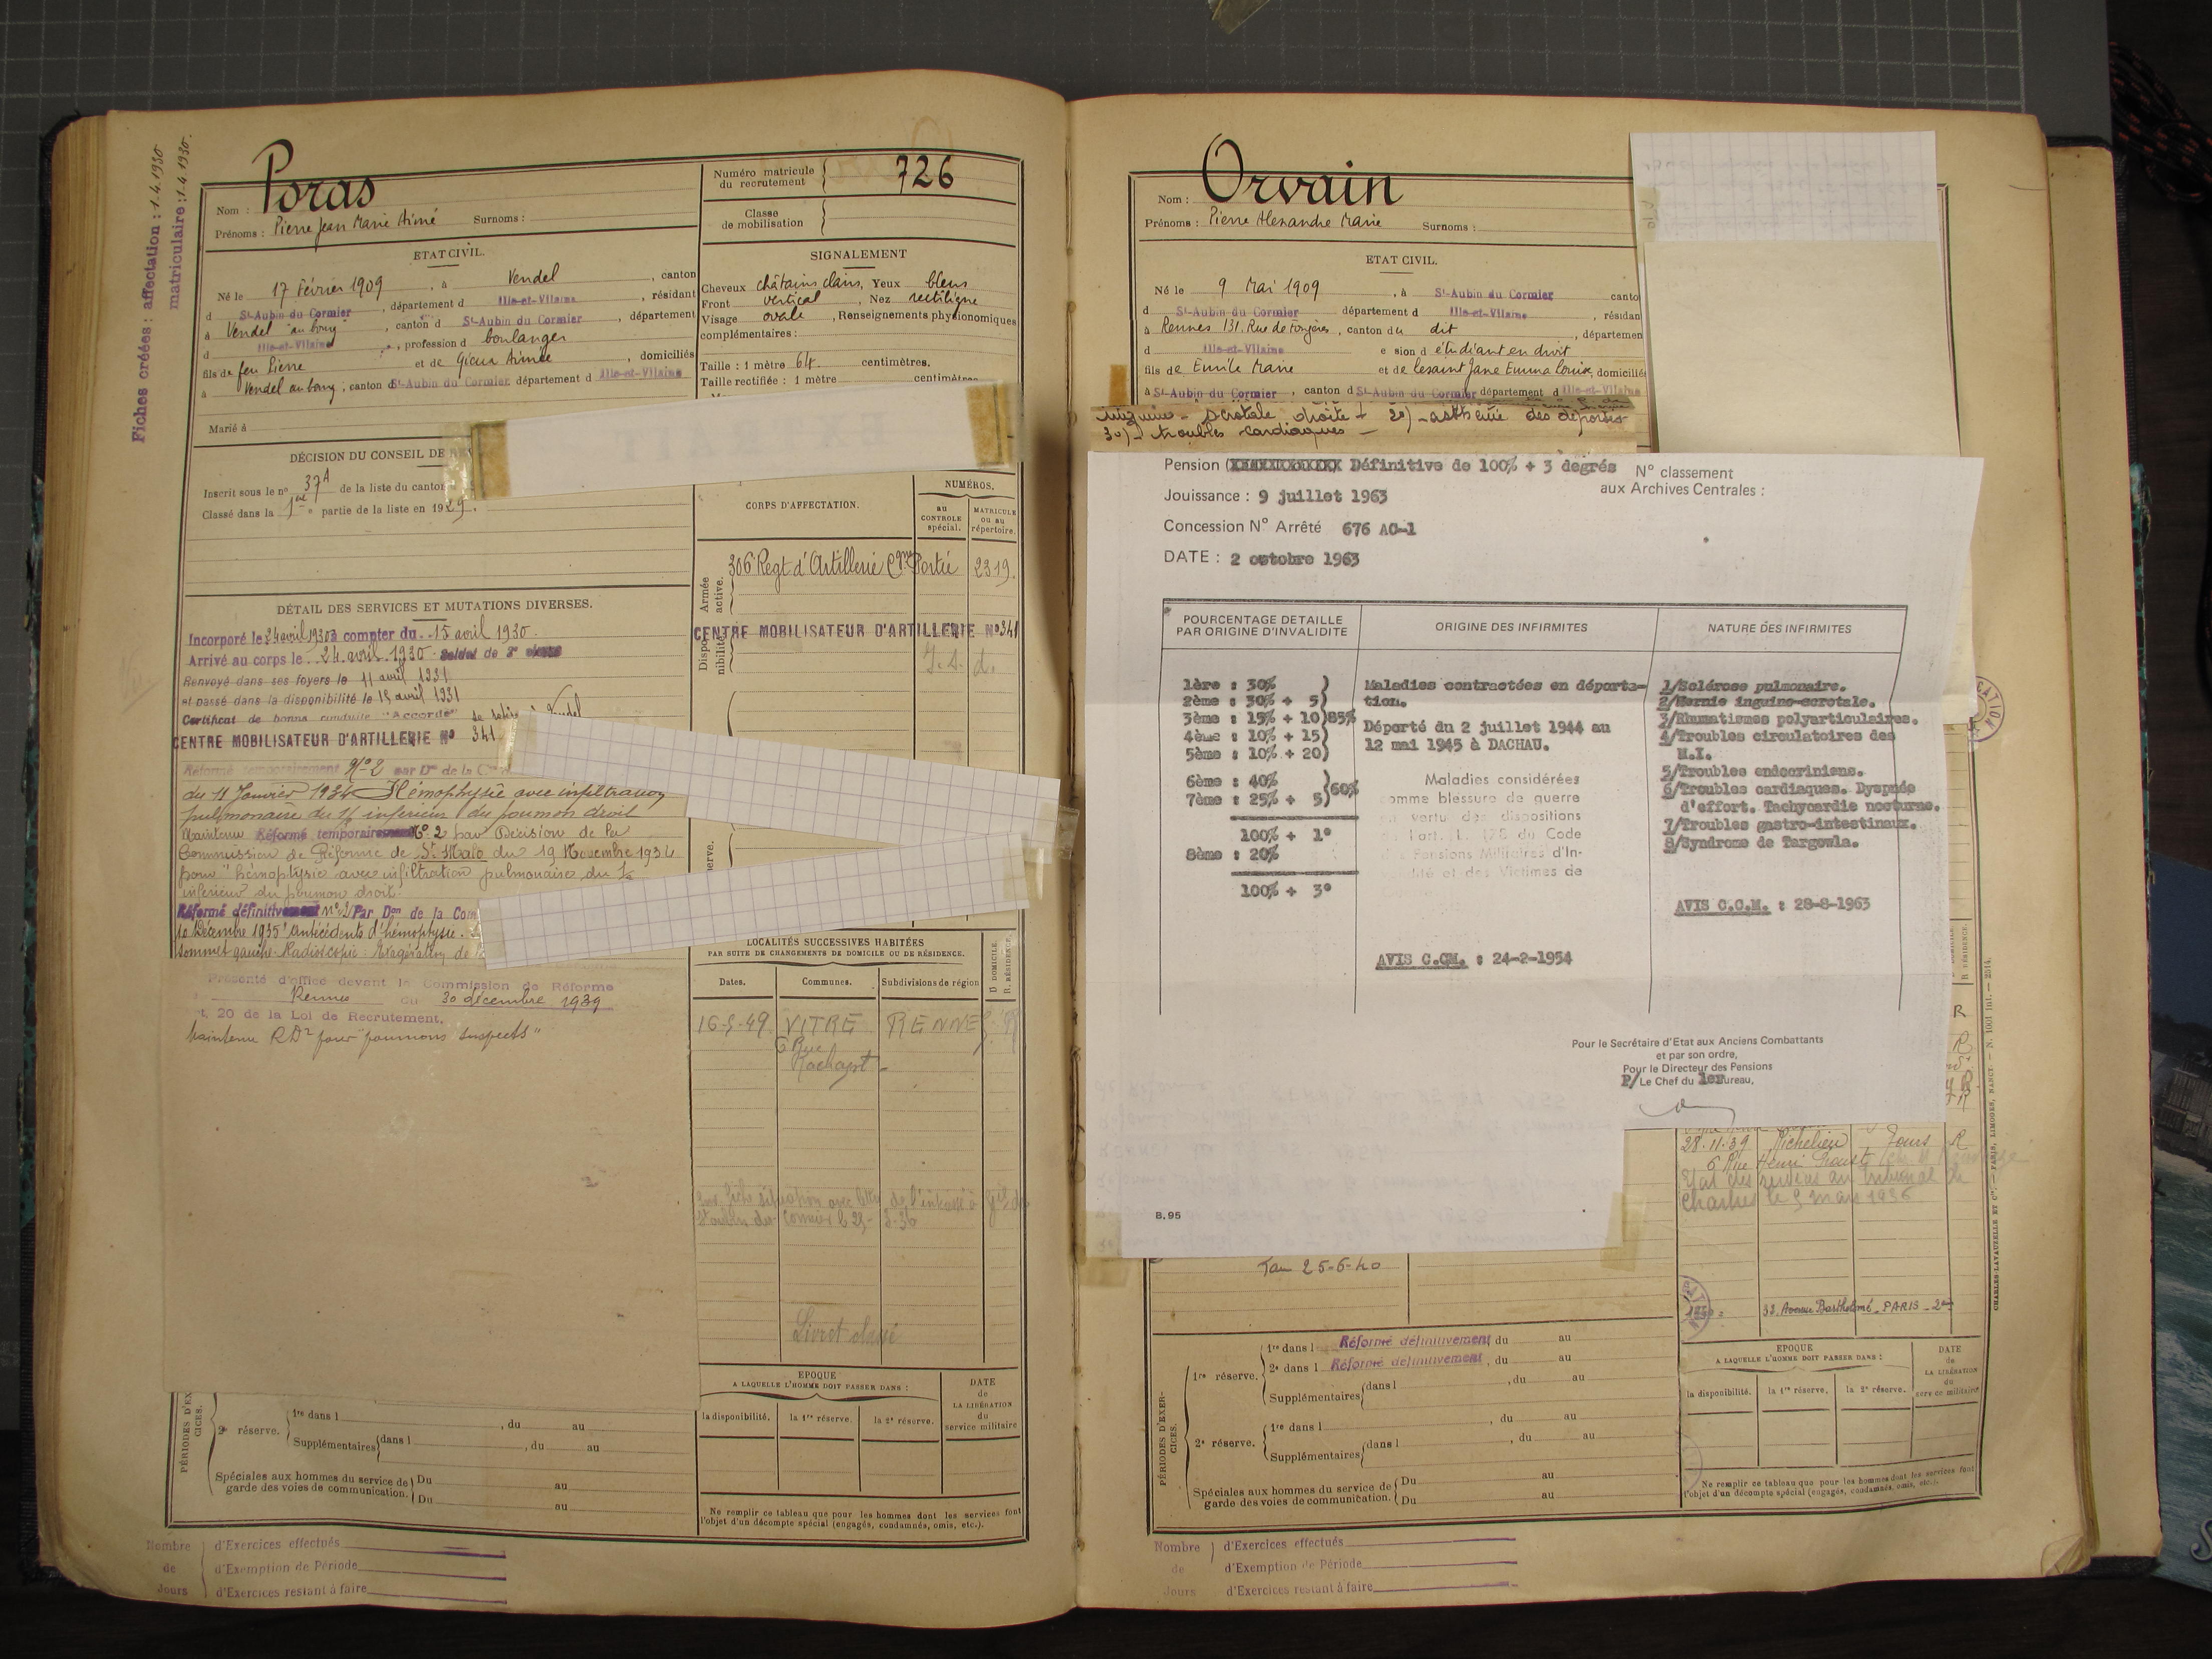 Fiches créées : affectation : 1.4.1930
matriculaire : 1.4.1930.
Nom : Poras
Prénoms : Pierre Jean Marie Aimé Surnoms :
Numéro matricule du recrutement 726
Classe de mobilisation
ETAT CIVIL.
Né le 17 Février 1909, à Vendel, canton
d St-Aubin du Cormier, département d Ille-et-Vilaine, résidant
à Vendel au bourg, canton d St-Aubin du Cormier, département
d Ille-et-Vilaine, profession d boulanger
fils de feu Pierre et de Gieux Aimée, domiciliés
à Vendel au bourg, canton d St-Aubin du Cormier département d Ille-et-Vilaine
Marié à
SIGNALEMENT
Cheveux châtains clairs, Yeux bleus
Front vertical, Nez rectiligne
Visage ovale, Renseignements physionomiques
complémentaires :
Taille : 1 mètre 64 centimètres.
Taille rectifiée : 1 mètre centimètres
DÉCISION DU CONSEIL DE
Inscrit sous le n° 37A de la liste du canton
Classé dans la 1re partie de la liste en 1929.
CORPS D'AFFECTATION.
NUMÉROS.
au CONTROLE spécial.
MATRICULE ou au répertoire.
Armée active.
306e Regt d'Artillerie Cgne Portée 2319.
Disponibilité
CENTRE MOBILISATEUR D'ARTILLERIE N°341
DÉTAIL DES SERVICES ET MUTATIONS DIVERSES.
Incorporé le 24 avril 1930 à compter du 15 avril 1930.
Arrivé au corps le 24 avril 1930 Soldat de 2e classe
Renvoyé dans ses foyers le 11 avril 1931
et passé dans la disponibilité le 15 avril 1931
Certificat de bonne conduite "Accordé" se retire à Vendel
CENTRE MOBILISATEUR D'ARTILLERIE N° 341
Réformé temporairement N°2 par Don de la
du 11 Janvier 1934 Hémophysie avec infiltration
pulmonaire du 1/3 inférieur du poumon droit
Maintenu Réformé temporairement N°2 par Décision de la
Commission de Réforme de St Malo du 19 Novembre 1934
pour "hémophysie avec infiltration pulmonaire du 1/3
inférieur du poumon droit.
Réformé définitivement n°2 Par Don de la Com
10 Décembre 1935 "Antécédents d'hémophysie.
sommet gauche. Radioscopie : Exagération de
Présenté d'office devant la Commission de Réforme
Rennes du 30 décembre 1939
t. 20 de la Loi de Recrutement.
Maintenu RD2 pour "poumons suspects"
LOCALITÉS SUCCESSIVES HABITÉES
PAR SUITE DE CHANGEMENTS DE DOMICILE OU DE RÉSIDENCE.
Dates. Communes. Subdivisions de région D. DOMICILE. R. RÉSIDENCE.
16-5-49 VITRÉ RENNES R
6 Rue
Livret classé
EPOQUE
A LAQUELLE L'HOMME DOIT PASSER DANS :
la disponibilité. la 1re réserve. la 2e réserve.
DATE de LA LIBÉRATION du service militaire
PÉRIODES D'EXERCICES.
2e réserve.
1re dans l , du au
Supplémentaires dans l , du au
Spéciales aux hommes du service de garde des voies de communication.
Du au
Du au
Ne remplir ce tableau que pour les hommes dont les services font
l'objet d'un décompte spécial (engagés, condamnés, omis, etc.).
Nombre de Jours
d'Exercices effectués
d'Exemption de Période
d'Exercices restant à faire
Nom : Orvain
Prénoms : Pierre Alexandre Marie Surnoms :
ETAT CIVIL.
Né le 9 Mai 1909, à St-Aubin du Cormier canto
d St-Aubin du Cormier département d Ille-et-Vilaine, résidan
à Rennes 131. Rue de Fougères, canton du dit, départemen
d Ille-et-Vilaine e sion d étudiant en droit
fils de Emile Marie et de Lesaint Jane Emma Louise, domiciliés
à St-Aubin du Cormier, canton d St-Aubin du Cormier département d Ille-et-Vilaine
scrotale droite + 2°)- asthénie des déportés
3°)- troubles cardiaques -
Pension (XXXXXXXXXXXX Définitive de 100% + 3 degrés
N° classement
aux Archives Centrales :
Jouissance : 9 juillet 1963
Concession N° Arrêté 676 AC-1
DATE : 2 octobre 1963
POURCENTAGE DETAILLE
PAR ORIGINE D'INVALIDITE
1ère : 30% )
2ème : 30% + 5)
3ème : 15% + 10)85%
4ème : 10% + 15)
5ème : 10% + 20)
6ème : 40% )
7ème : 25% + 5)60%
100% + 1°
8ème : 20%
100% + 3°
ORIGINE DES INFIRMITES
Maladies contractées en déporta-
tion.
Déporté du 2 juillet 1944 au
12 mai 1945 à DACHAU.
Maladies considérées
comme blessure de guerre
en vertu des dispositions
de l'art. L. 178 du Code
des Pensions Militaires d'In-
validité et des Victimes de
AVIS C.CM. : 24-2-1954
NATURE DES INFIRMITES
1/Sclérose pulmonaire.
2/Hernie inguino-scrotale.
3/Rhumatismes polyarticulaires.
4/Troubles circulatoires des
M.I.
5/Troubles endocriniens.
6/Troubles cardiaques. Dyspnée
d'effort. Tachycardie nocturne.
7/Troubles gastro-intestinaux.
8/Syndrome de Targowla.
AVIS C.C.M. : 28-8-1963
Pour le Secrétaire d'Etat aux Anciens Combattants
et par son ordre,
Pour le Directeur des Pensions
P/ Le Chef du 1er ureau,
B.95
28.11.39 Richelieu Tours R
6 Rue Henri Proust
Etat des services au Tribunal de
Chartres le 5 mars 1936
Tau 25-6-40
32. Avenue Barthelemé - PARIS -
1re réserve.
1re dans l Réformé définitivement, du au
2e dans l Réformé définitivement, du au
Supplémentaires dans l , du au
2e réserve.
1re dans l , du au
Supplémentaires dans l , du au
PÉRIODES D'EXERCICES.
Spéciales aux hommes du service de garde des voies de communication.
Du au
Du au
EPOQUE
A LAQUELLE L'HOMME DOIT PASSER DANS :
la disponibilité. la 1re réserve. la 2e réserve.
DATE de LA LIBÉRATION du service militaire
Ne remplir ce tableau que pour les hommes dont les services font
l'objet d'un décompte spécial (engagés, condamnés, omis, etc.
Nombre de Jours
d'Exercices effectués
d'Exemption de Période
d'Exercices restant à faire
CHARLES-LAVAUZELLE ET Cie. — PARIS, LIMOGES, NANCY. — N. 1001 Int. — 2514.